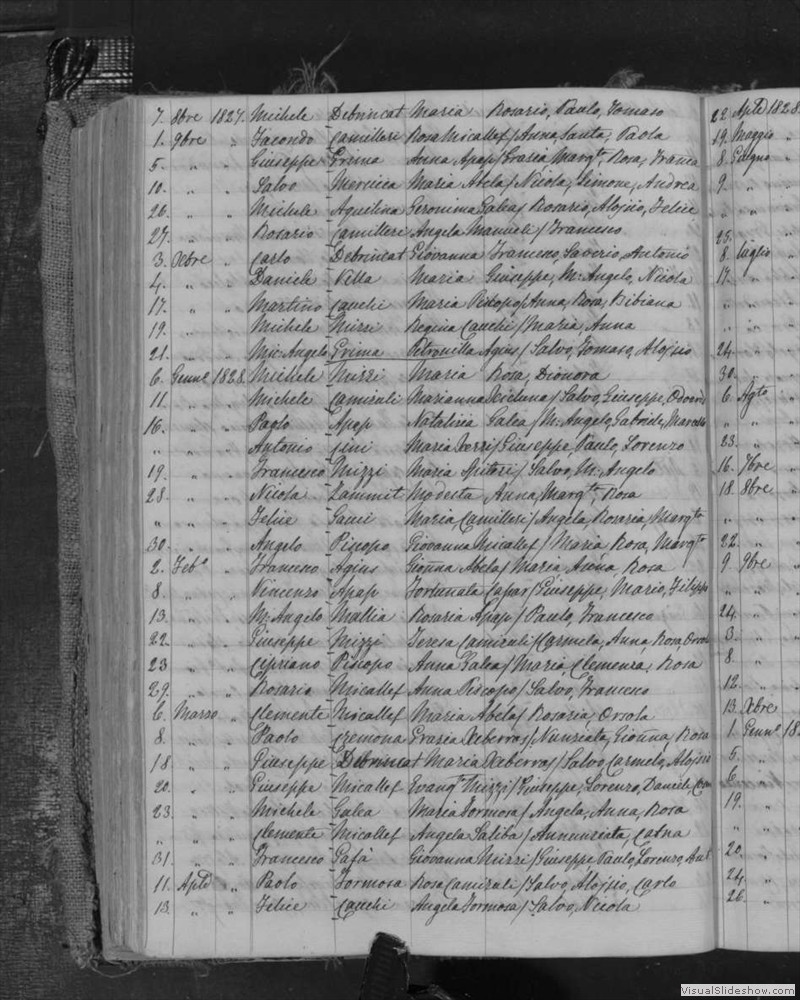 7. 8bre 1827. Michele Debrincat Maria Rosario, Paulo, Tomaso
1. 9bre " Facondo Camilleri Rosa Micallef / Anna, Santa, Paola
5. " " Giuseppe Grima Anna Apap / Grazia Margta, Rosa, Franca
10. " " Salvo Mercieca Maria Abela / Nicola, Simone, Andrea
26. " " Michele Aquilina Geronima Galea / Rosario, Aloisio, Felice
27. " " Rosario Camilleri Angela / Francesco
3. Xbre " Carlo Debrincat Giovanna Francesco, Saverio, Antonio
4. " " Daniele Vella Maria Giuseppe, M. Angelo, Nicola
17. " " Martino Cauchi Maria Piscopo / Anna, Rosa, Bibiana
19. " " Michele Mizzi Regina Cauchi / Maria, Anna
21. " " Mic. Angelo Grima Petronilla Agius / Salvo, Tomaso, Aloisio
6. Genno 1828. Michele Mizzi Maria Rosa, Dionora
11. " " Michele Camizuli Marianna Xicluna / Salvo, Giuseppe,
16. " " Paolo Apap Natalizia Galea / M. Angelo, Gabriele, Marcello
" " " Antonio Cini Maria Xerri / Giuseppe, Paulo, Lorenzo
19. " " Francesco Mizzi Maria / Salvo, M. Angelo
28. " " Nicola Zammit Modesta Anna, Margta, Rosa
" " " Felice Gauci Maria Camilleri / Angela, Rosaria, Margta
30. " " Angelo Piscopo Giovanna Micallef / Maria, Rosa, Margta
2. Febo " Francesco Agius Gioñna Abela / Maria, Anna, Rosa
8. " " Vincenzo Apap Fortunata Caspar / Giuseppe, Mario, Filippo
13. " " M. Angelo Mallia Rosaria Apap / Paulo, Francesco
22. " " Giuseppe Mizzi Teresa Camizuli / Carmela, Anna, Rosa, Orsola
23 " " Cipriano Piscopo Anna Galea / Maria, Clemenza, Rosa
29. " " Rosario Micallef Anna Piscopo / Salvo, Francesco
6. Marzo " Clemente Micallef Maria Abela / Rosaria, Orsola
8. " " Paolo Cremona Grazia Xeberras / Nunziata, Gioñna, Rosa
18. " " Giuseppe Debrincat Maria Xeberras / Salvo, Carmelo, Aloisio
20. " " Giuseppe Micallef Evanqta Mizzi / Giuseppe, Lorenzo, Daniele,
23. " " Michele Galea Maria Formosa / Angela, Anna, Rosa
" " " Clemente Micallef Angela Saliba / Annunziata, Catna
31. " " Francesco Gafà Giovanna Mizzi / Giuseppe, Paulo, Lorenzo, Ant
11. Aple " Paolo Formosa Rosa Camizuli / Salvo, Aloisio, Carlo
13. " " Felice Cauchi Angela Formosa / Salvo, Nicola
22. Aple 1828.
19. Maggio "
8. Giugno "
9. " "
" " "
25. " "
8. Luglio "
17. " "
" " "
" " "
24. " "
30. " "
6. Agto "
" " "
23. " "
16. 7bre "
18. 8bre "
" " "
22. " "
9. 9bre "
" " "
24. " "
3. "
8. "
12. "
13. Xbre "
1. Genno 18
5. "
6. "
19. "
" "
20. "
24. "
26. "
VisualSlideshow.com